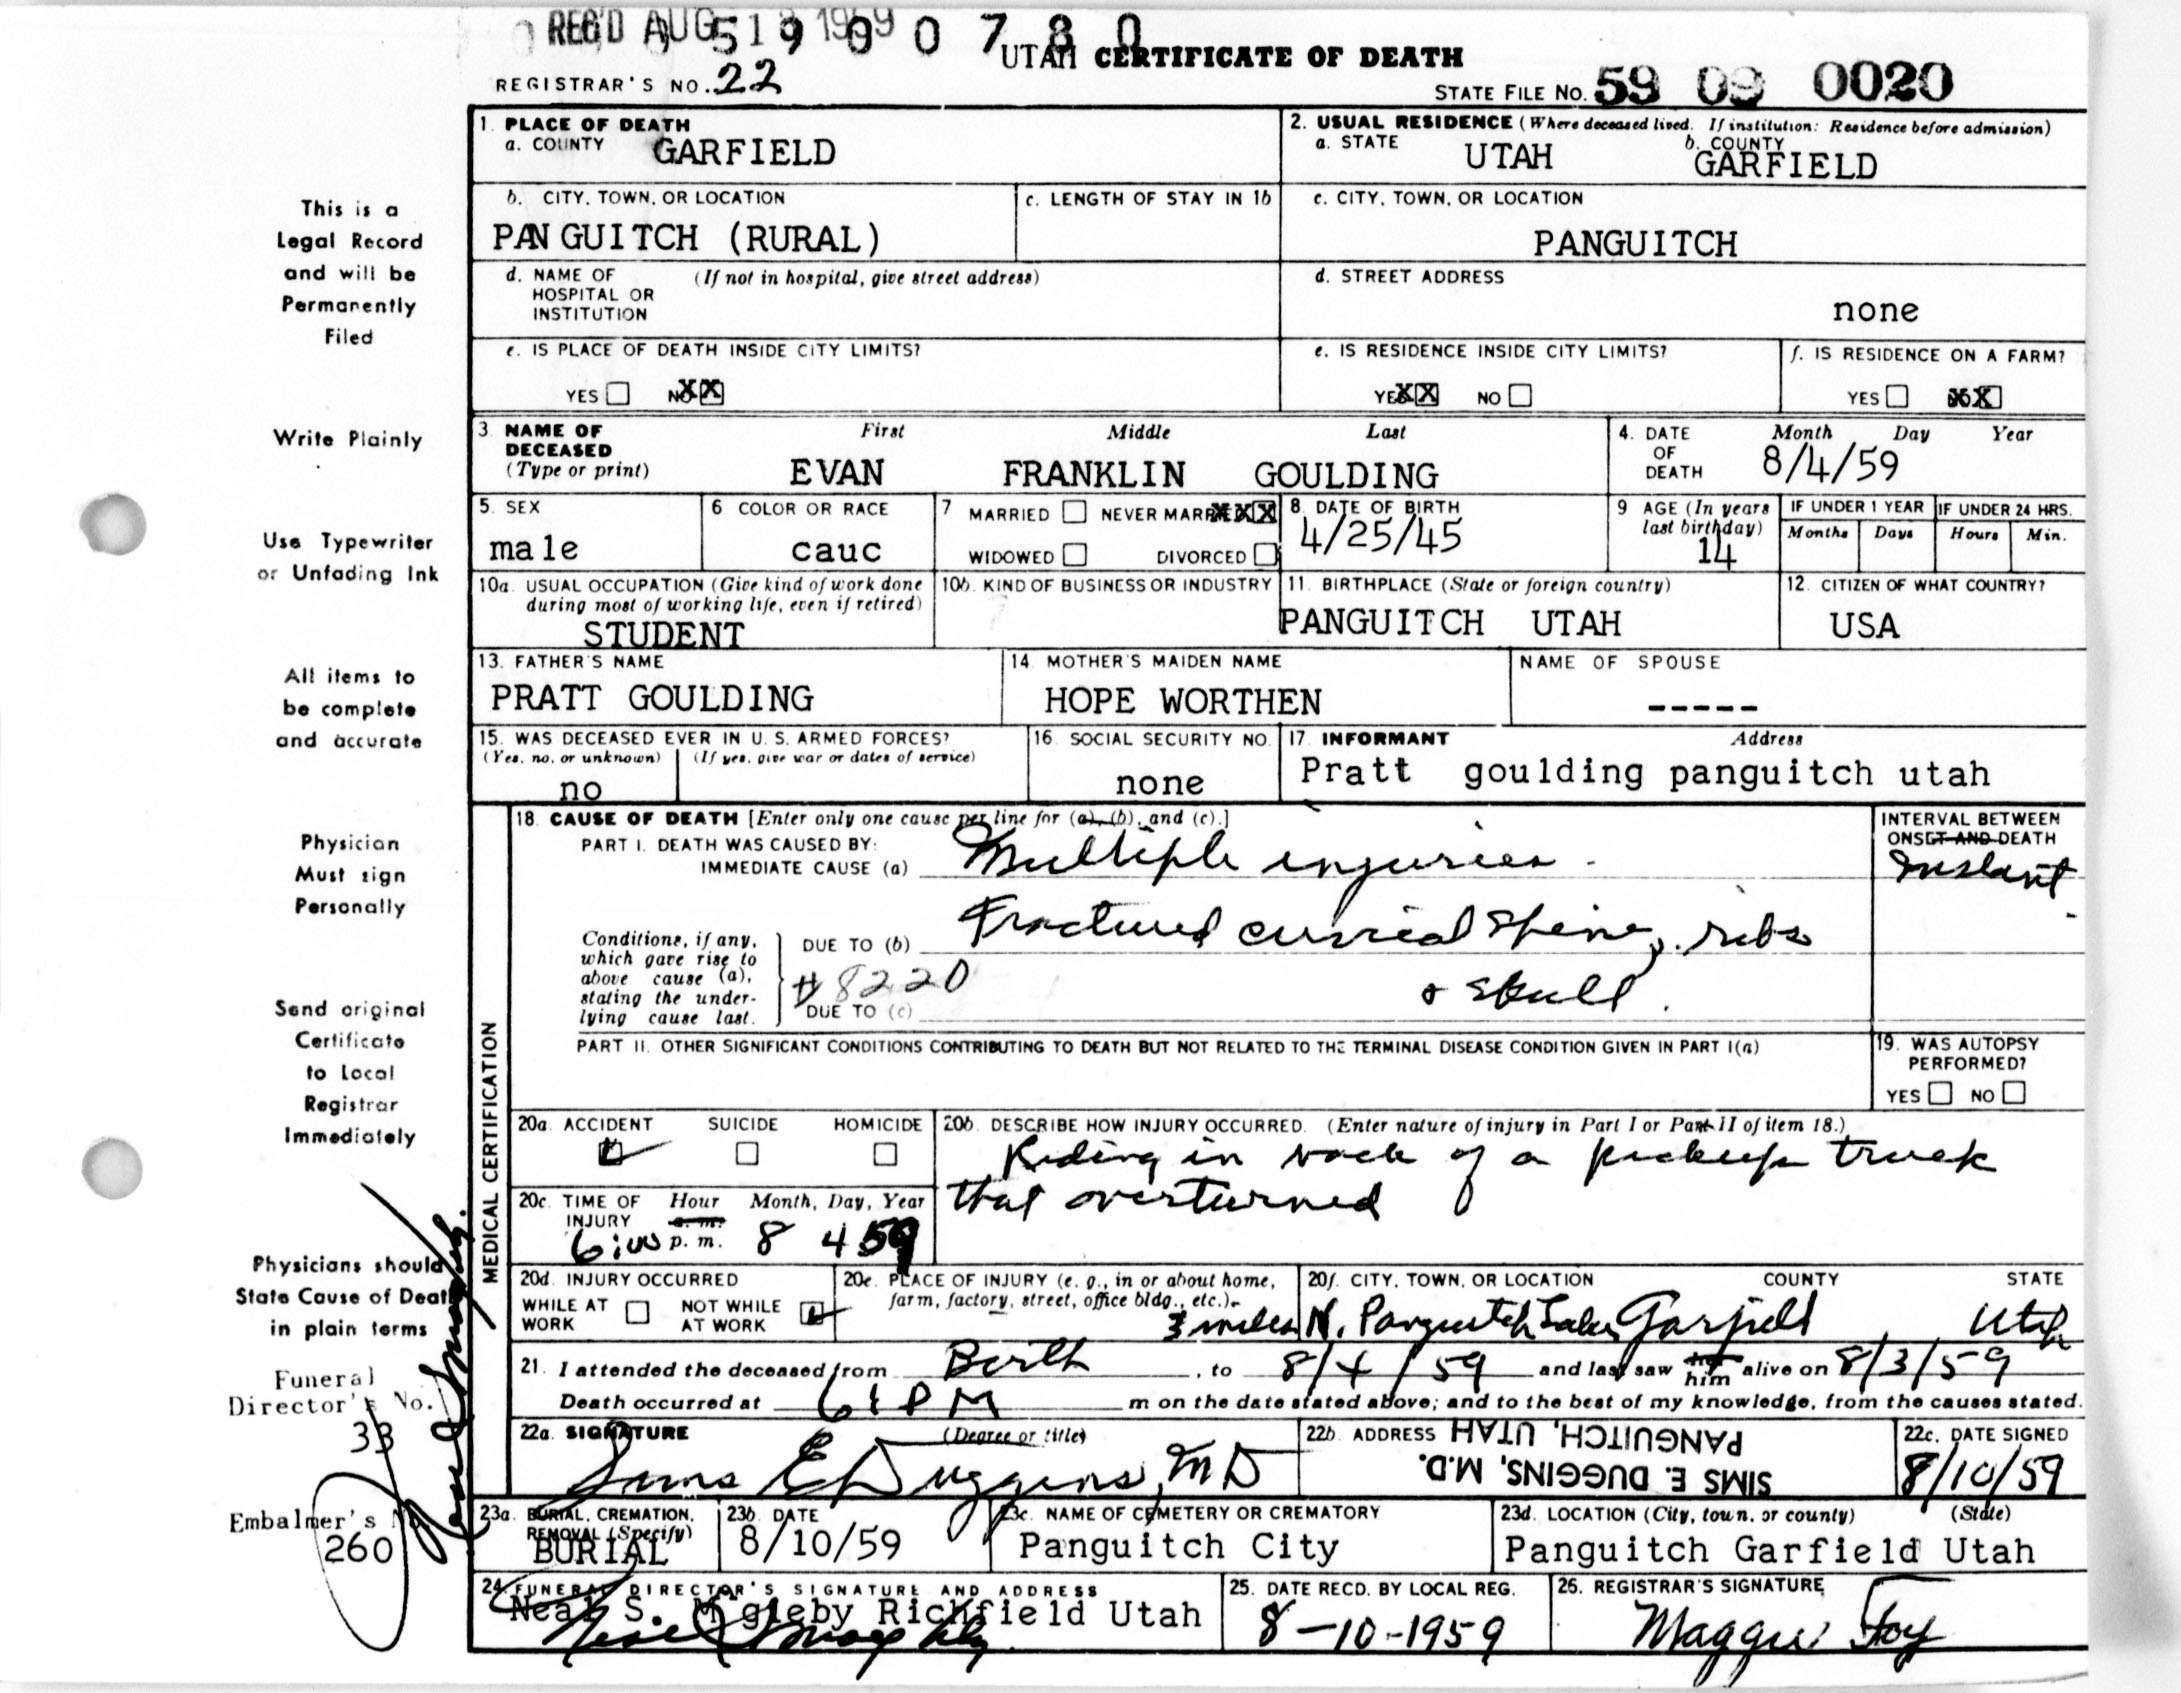 REC'D AUG 1959
5 9 0 0 7 8 0
UTAH CERTIFICATE OF DEATH
REGISTRAR'S NO. 22
STATE FILE No. 59 09 0020
This is a
Legal Record
and will be
Permanently
Filed
Write Plainly
Use Typewriter
or Unfading Ink
All items to
be complete
and accurate
Physician
Must sign
Personally
Send original
Certificate
to Local
Registrar
Immediately
Physicians should
State Cause of Death
in plain terms
Funeral
Director's No.
33
Embalmer's No.
260
1. PLACE OF DEATH
a. COUNTY GARFIELD
2. USUAL RESIDENCE (Where deceased lived. If institution: Residence before admission)
a. STATE UTAH b. COUNTY GARFIELD
b. CITY, TOWN, OR LOCATION
PANGUITCH (RURAL)
c. LENGTH OF STAY IN 1b
c. CITY, TOWN, OR LOCATION
PANGUITCH
d. NAME OF (If not in hospital, give street address)
HOSPITAL OR
INSTITUTION
d. STREET ADDRESS
none
e. IS PLACE OF DEATH INSIDE CITY LIMITS?
YES NO XX
e. IS RESIDENCE INSIDE CITY LIMITS?
YES XX NO
f. IS RESIDENCE ON A FARM?
YES NO XX
3. NAME OF First Middle Last
DECEASED
(Type or print) EVAN FRANKLIN GOULDING
4. DATE Month Day Year
OF
DEATH 8/4/59
5. SEX
male
6 COLOR OR RACE
cauc
7 MARRIED NEVER MARRIED XXX
WIDOWED DIVORCED
8. DATE OF BIRTH
4/25/45
9 AGE (In years
last birthday)
14
IF UNDER 1 YEAR IF UNDER 24 HRS.
Months Days Hours Min.
10a. USUAL OCCUPATION (Give kind of work done
during most of working life, even if retired)
STUDENT
10b. KIND OF BUSINESS OR INDUSTRY
11. BIRTHPLACE (State or foreign country)
PANGUITCH UTAH
12. CITIZEN OF WHAT COUNTRY?
USA
13. FATHER'S NAME
PRATT GOULDING
14. MOTHER'S MAIDEN NAME
HOPE WORTHEN
NAME OF SPOUSE
-----
15. WAS DECEASED EVER IN U. S. ARMED FORCES?
(Yes, no, or unknown) (If yes, give war or dates of service)
no
16. SOCIAL SECURITY NO.
none
17. INFORMANT Address
Pratt goulding panguitch utah
MEDICAL CERTIFICATION
18. CAUSE OF DEATH [Enter only one cause per line for (a), (b), and (c).]
PART I. DEATH WAS CAUSED BY:
IMMEDIATE CAUSE (a) Multiple injuries
INTERVAL BETWEEN
ONSET AND DEATH
Instant
Conditions, if any,
which gave rise to
above cause (a),
stating the under-
lying cause last.
DUE TO (b) Fractured cervical spine, ribs
# 8220
& skull.
DUE TO (c)
PART II. OTHER SIGNIFICANT CONDITIONS CONTRIBUTING TO DEATH BUT NOT RELATED TO THE TERMINAL DISEASE CONDITION GIVEN IN PART I(a)
19. WAS AUTOPSY
PERFORMED?
YES NO
20a. ACCIDENT SUICIDE HOMICIDE
20b. DESCRIBE HOW INJURY OCCURRED. (Enter nature of injury in Part I or Part II of item 18.)
Riding in back of a pickup truck
that overturned
20c. TIME OF Hour Month, Day, Year
INJURY a. m.
6:00 p. m. 8 4 59
20d. INJURY OCCURRED
WHILE AT NOT WHILE
WORK AT WORK
20e. PLACE OF INJURY (e. g., in or about home,
farm, factory, street, office bldg., etc.)
20f. CITY, TOWN, OR LOCATION COUNTY STATE
3 miles N. Panguitch Lake, Garfield Utah
21. I attended the deceased from Birth, to 8/4/59 and last saw her him alive on 8/3/59
Death occurred at 6: PM m on the date stated above; and to the best of my knowledge, from the causes stated.
22a. SIGNATURE (Degree or title)
Sims E Duggins, MD
22b. ADDRESS
SIMS E. DUGGINS, M.D.
PANGUITCH, UTAH
22c. DATE SIGNED
8/10/59
23a. BURIAL, CREMATION,
REMOVAL (Specify)
BURIAL
23b. DATE
8/10/59
23c. NAME OF CEMETERY OR CREMATORY
Panguitch City
23d. LOCATION (City, town, or county) (State)
Panguitch Garfield Utah
24. FUNERAL DIRECTOR'S SIGNATURE AND ADDRESS
Neal S. Magleby Richfield Utah
Neal S Magleby
25. DATE RECD. BY LOCAL REG.
8-10-1959
26. REGISTRAR'S SIGNATURE
Maggie Foy